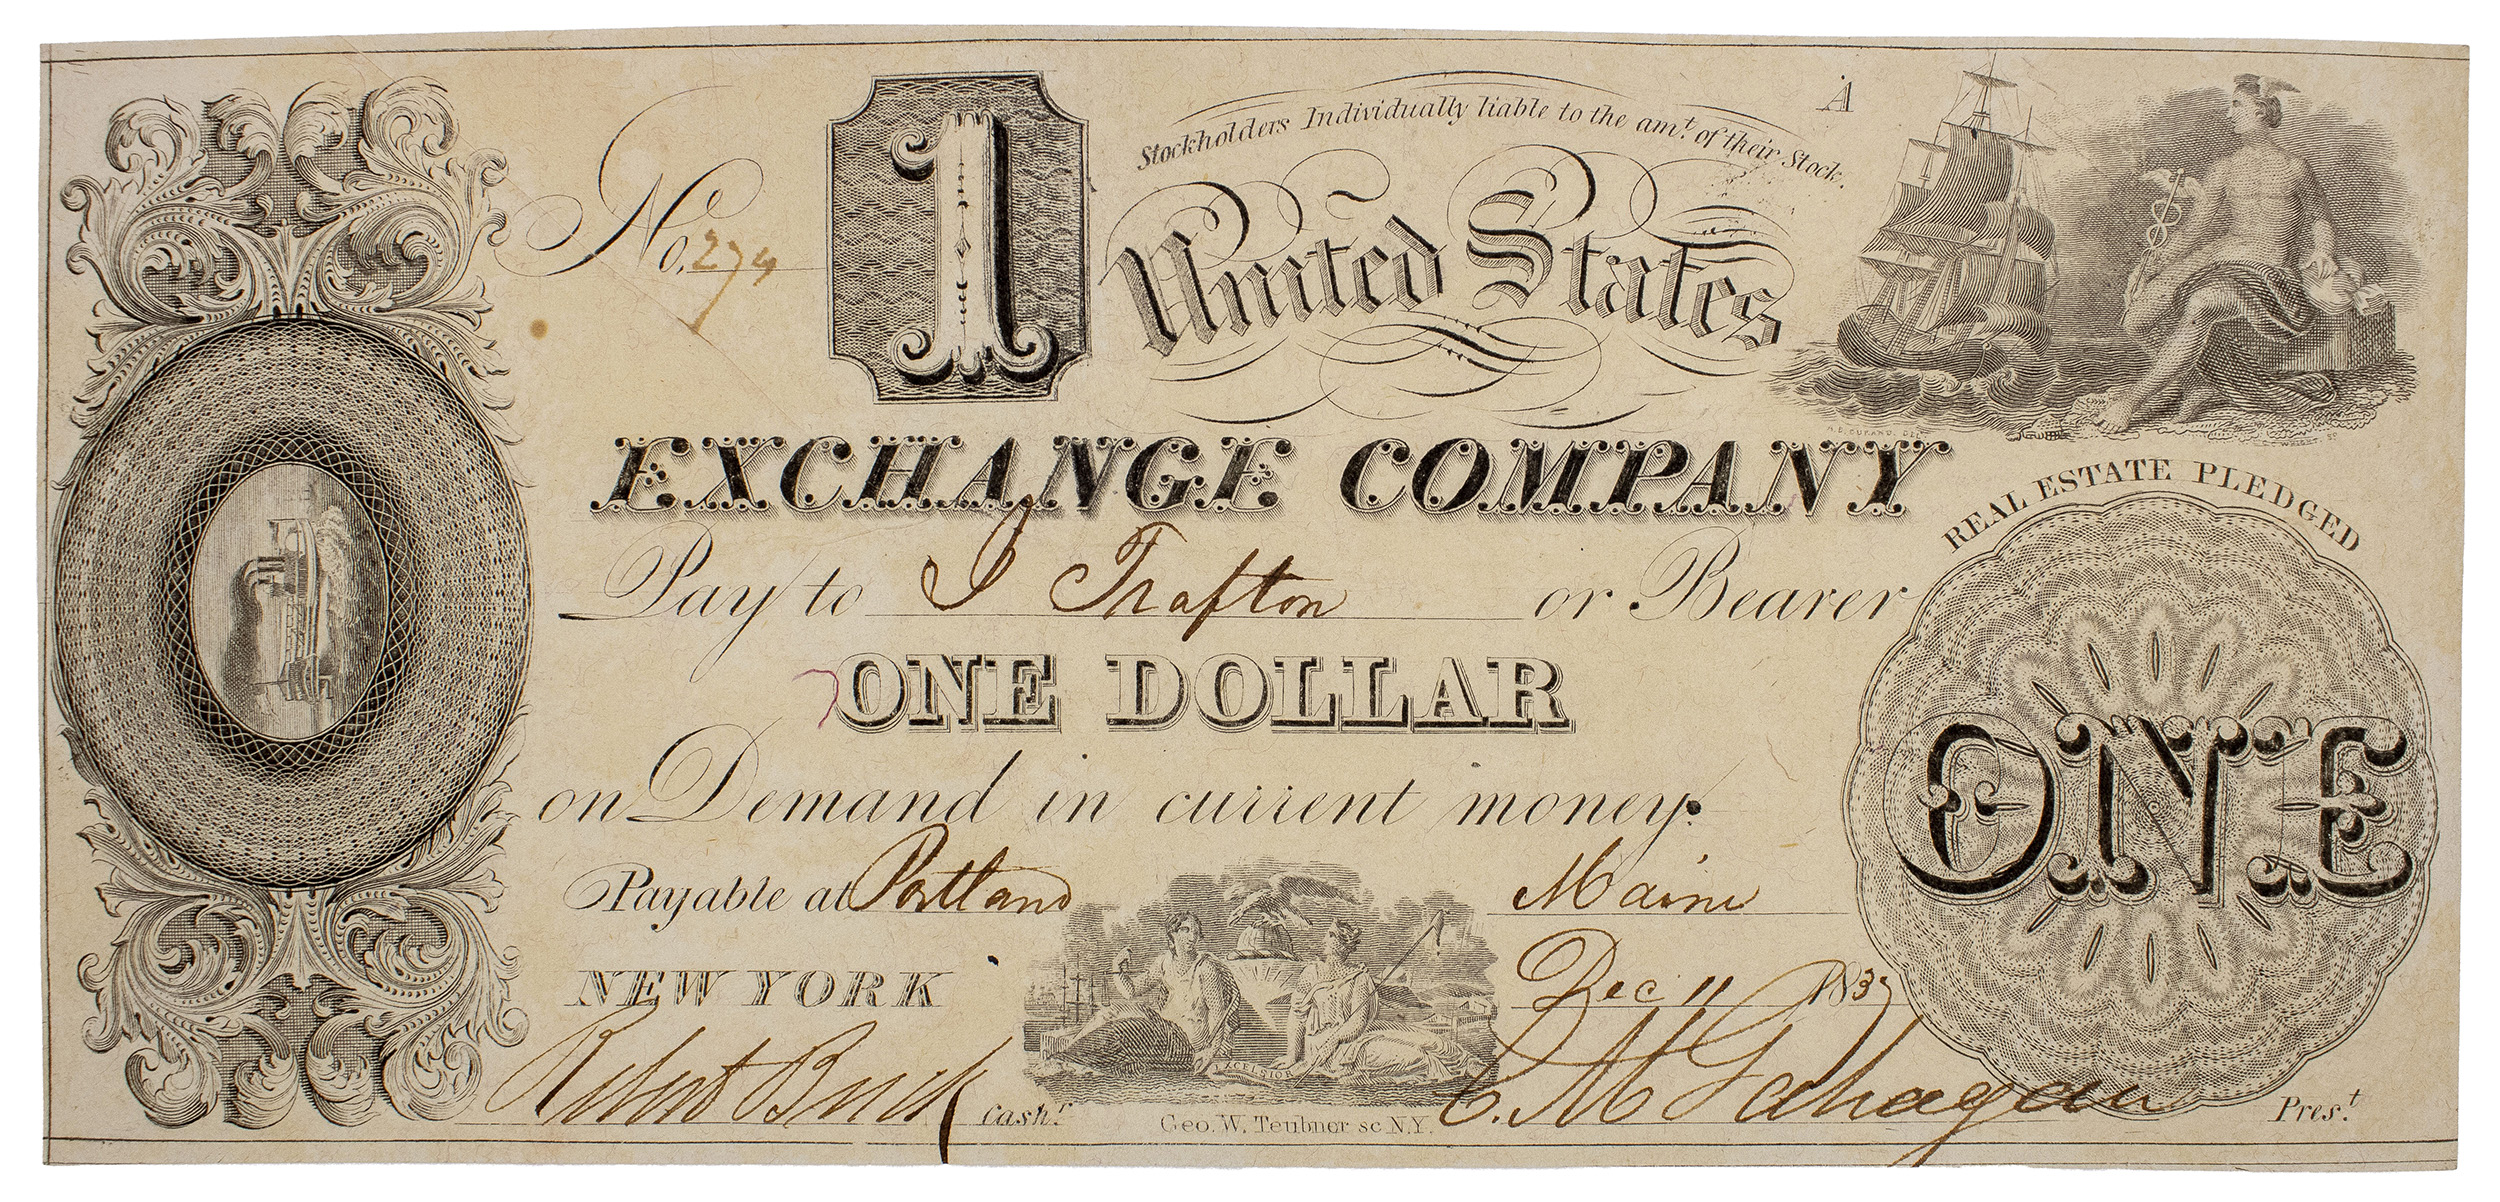 No. 274
1
Stockholders Individually liable to the amt. of their Stock.
A
United States
EXCHANGE COMPANY
REAL ESTATE PLEDGED
Pay to J Trafton or Bearer
ONE DOLLAR
ONE
on Demand in current money.
Payable at Portland Maine
NEW YORK Dec 11 1837
EXCELSIOR
Robert Cashr.
Geo. W. Teubner sc N.Y.
Prest.